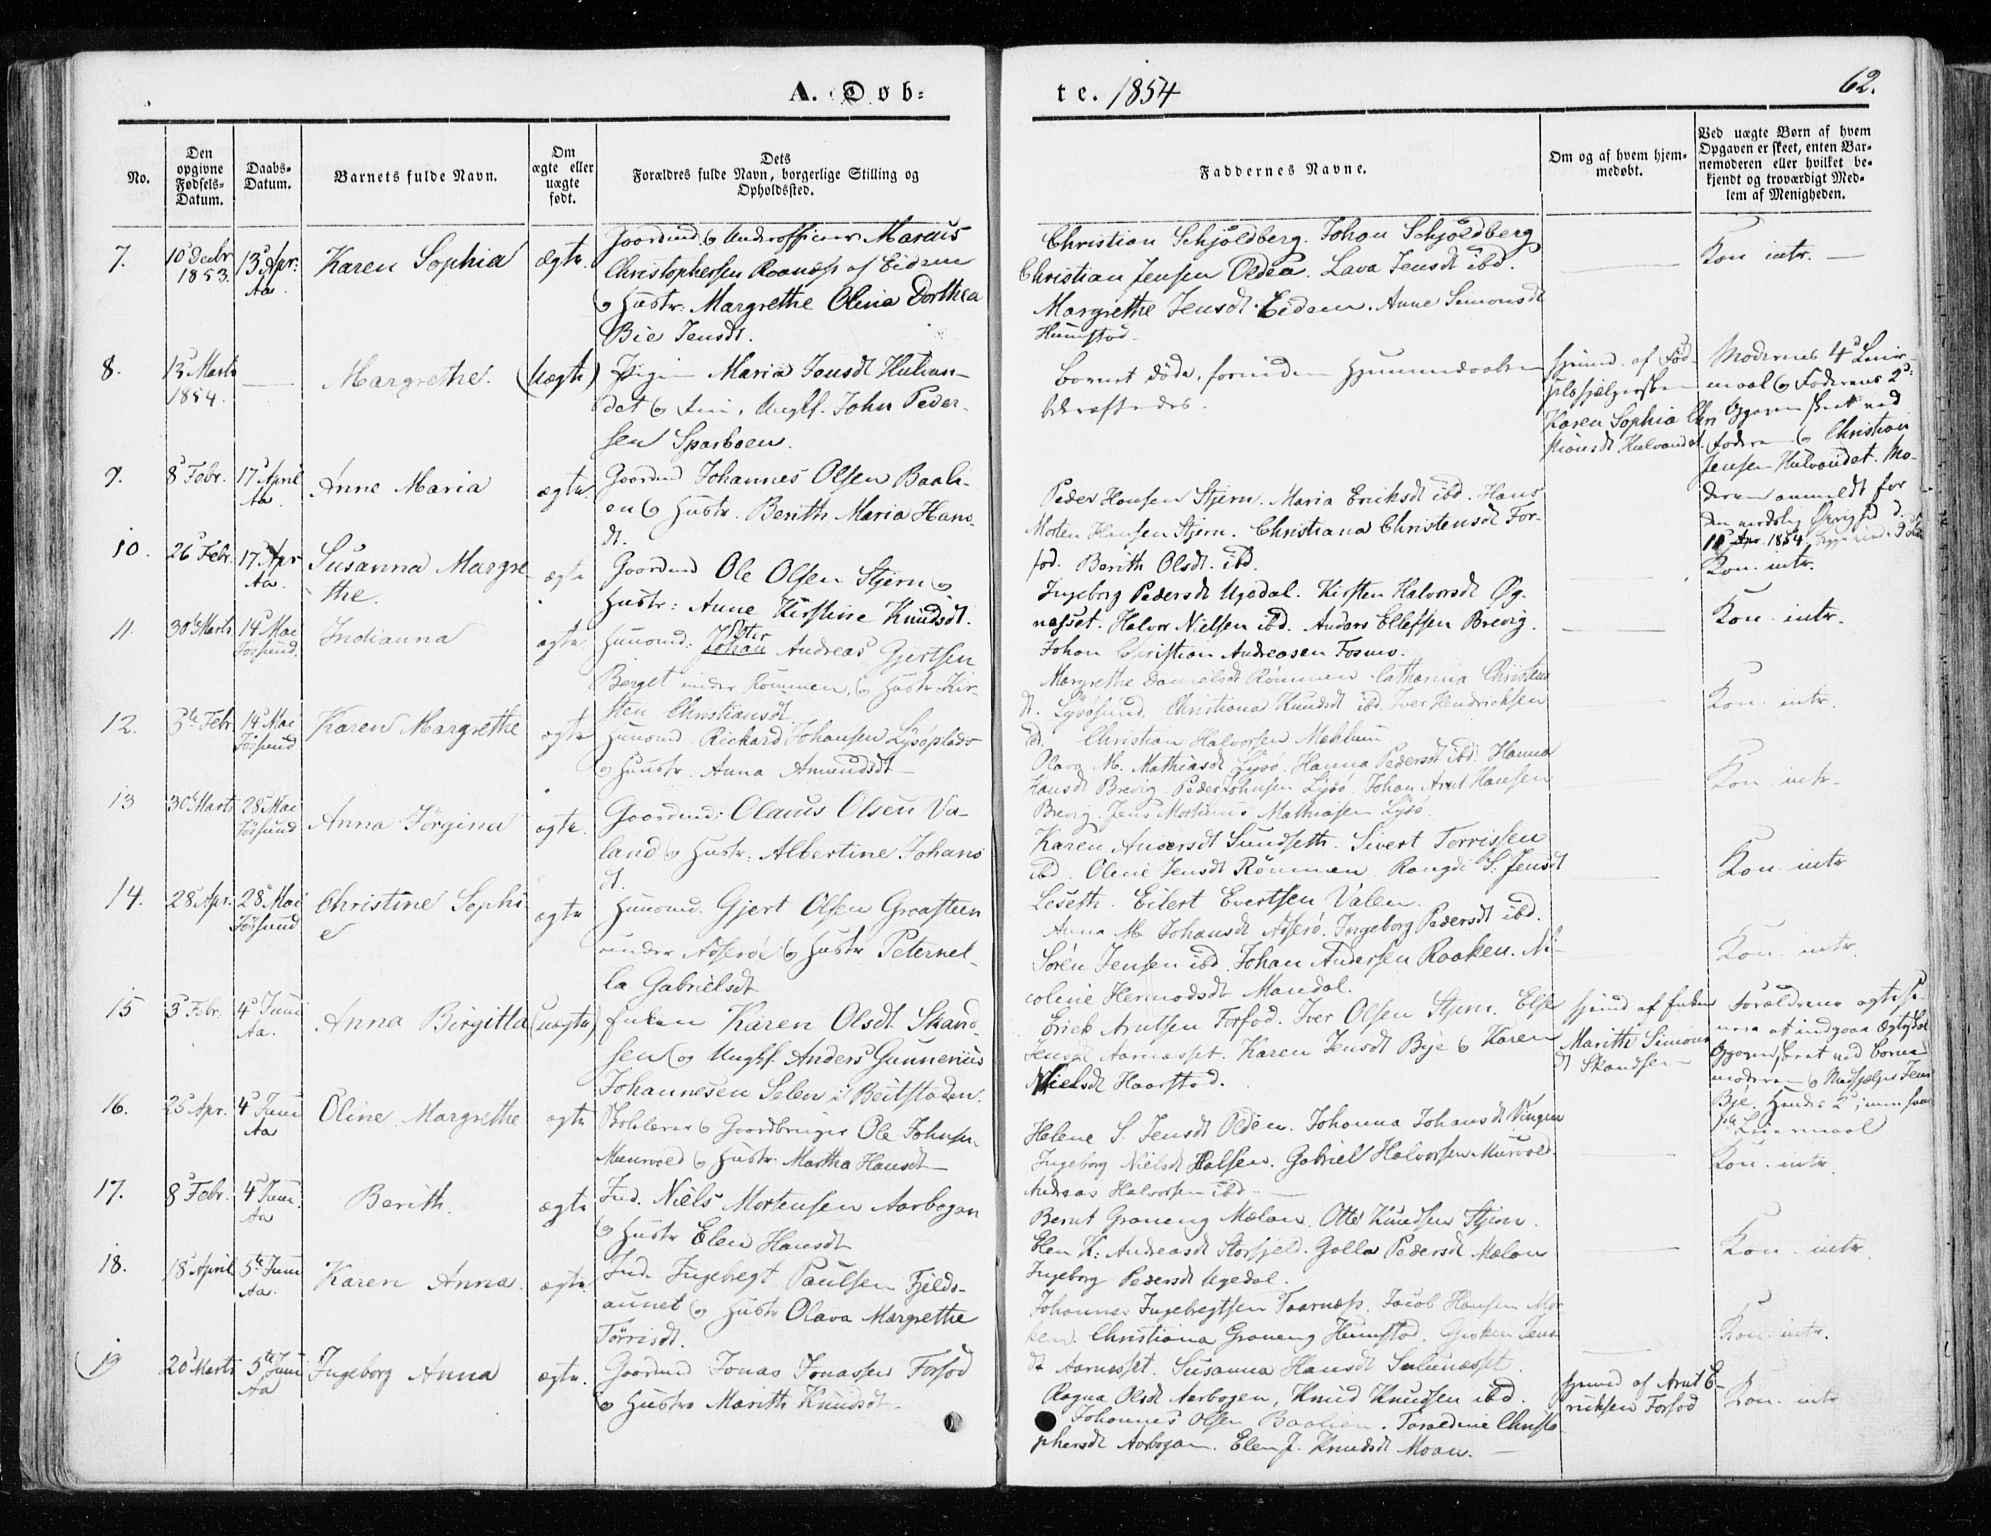 A. Døb-
te. 1854
62.
No.
Den opgivne Fødsels-Datum.
Daabs-Datum.
Barnets fulde Navn.
Om ægte eller uægte født.
Dets
Forældres fulde Navn, borgerlige Stilling og
Opholdssted.
Faddernes Navne.
Om og af hvem hjem-
medøbt.
Ved uægte Børn af hvem
Opgaven er skeet, enten Bar-
nemoderen eller hvilket be-
kjendt og troværdigt Med-
lem af Menigheden.
7. 10 Decbr 1853. 13 Apr: Aa. Karen Sophia ægte
Gaardmd. og Underofficer Marcus
Christophersen Raanæss af Eidem
og Hustr: Margrethe Olina Dorthea
Bie Jensdt.
Christian Schjöldberg. Johan Schjöldberg
Christian Jensen Olden. Lava Jensdt ibd.
Margrethe Jensdt Eidem. Anne Simonsdt
Humstad.
Kon. intr.
8. 13 Marts 1854. Margrethe. (Uægte)
Pigen Maria Jensdt Hulvan-
det og Ungkf. John Peder-
sen Sparboen.
Barnet døde, forinden Hjemmedaaben
bekræftedes.
Hjemd. af Fød-
Karen Sophia Chri
stiansdt Hulvandet.
Moderens 4d Leier-
maal og Faderens 2d
Opgaven skeet ved
Faderen og Christian
Jensen Hulvandet. Mo-
deren anmeldt for
den verdslig Øvrighed d.
Apr. 1854
9. 8 Febr. 17 April Aa. Anne Maria ægte.
Gaardmd Johannes Olsen Baali-
en og Hustr. Berith Maria Hans-
dt.
Peder Hansen Stjern. Maria Eriksdt ibd. Hans
Morten Hansen Stjern. Christiana Christensdt For-
fod. Berith Olsdt. ibd.
Kon. intr.
10. 26 Febr. 17 Apr Aa. Susanna Margre-
the. ægte
Gaardmd Ole Olsen Stjern og
Hustr: Anne Kirstine Knudsdt.
Ingeborg Pedersdt Ugedal. Kirsten Halvorsdt Øg-
næsset. Halvor Nielsen ibd. Anders Ellefsen Brevig.
Johan Christian Andreasen Fosmo.
Kon. intr.
11. 30 Marts 14 Mai Jössund. Indianna ægte
Huusmd: Peter
Johan Andreas Gjertsen
Berget under Rømmen, og Hustr. Kir-
sten Christiansdt.
Margrethe Danielsdt Rømmen Catharina Christens
dt. Lysøsund. Christiana Knudsdt ibd. Iver Hendricksen
ibd. Christian Halvorsen Mæhlum
Kon. intr.
12. 3te Febr 14 Mai Jössund Karen Margrethe ægte
Huusmd. Rickard Johansen Lysøplads
og Huustr. Anna Amundsdt
Olava M. Mathiasdt Lysø. Hanna Pedersdt ibd. Hanna
Hansdt Brevig. Peder Johnsen Lysø. Johan Arnt Hansen
Brevig. Jens Mortinus Mathiasen Lysø.
Kon. intr.
13 30 Marts 28 Mai Jössund Anna Jörgina ægte.
Gaardmd: Olaus Olsen Va-
land og Hustr: Albertine Johans
dt.
Karen Andersdt Sundseth. Sivert Torrissen
ibd. Oline Jensdt Rømmen. Rangdi S. Jensdt
Leseth. Eilert Evertsen Valen.
Kon. intr
14. 28 Apr. 28 Mai Jössund Christine Sophi-
e ægte
Huusmd. Gjert Olsen Graasteen
under Adserø og Hustr Peternel-
la Gabrielsdt
Anna M. Johansdt Adserø. Ingeborg Pedersdt ibd.
Sören Jensen ibd. Johan Andersen Raaken. Ni-
coline Hermodsdt Mandal.
Kon. intr.
15 3 Febr. 4 Juni Aa. Anna Birgitta (uægte)
Enken Karen Olsdt. Skand-
sen og Ungkf. Anders Gunnerius
Johannesen Selen i Beitstaden.
Erick Arntsen Forfod. Iver Olsen Stjern. Else
Jensdt Aarnæsset. Karen Jensdt Bye og Karen
Nielsdt Haarstad.
Hjemd af Enken
Marith Simons
dt Skandsen
Forældrene agte se-
nere at indgaae Ægteskab
Opgaven skeet ved Barne-
moderen og Jens
Bye. Hendes 2d
Leiermaal
16. 25 Apr. 4 Juni Aa Oline Margrethe ægte
Skolelærer og Gaardbruger Ole Johnsen
Murvold og Hustr. Martha Hansdt
Helene S. Jensdt Olden. Johanna Johansdt Vingen
Ingeborg Nielsdt Halsen. Gabriel Halvorsen Murvold.
Andreas Halvorsen ibd.
Kon. intr.
17. 8 Febr. 4 Juni. Aa Berith. ægte
Ind. Niels Mortensen Aarbogen
og Hustr Elen Hansdt
Bernt Graneng Mælan. Otter Knudsen Stjern.
Elen K: Andreasdt Storfjeld. Golla Pedersdt Mælan
Ingeborg Pedersdt Ugedal.
Kon. intr
18. 18 April 5te Juni Aa. Karen Anna. ægte.
Ind. Ingebregt Paulsen Fjelds-
aunet og Hustr Olava Margrethe
Törrisdt.
Johannes Ingebregtsen Taarnæss. Jacob Hansen Mor-
ken. Christiana Graneng Humstad. Gjoken Jens-
dt Aarnæsset. Susanna Hansdt Selnæsset.
Kon. intr.
19 20 Marts 5te Juni Aa Ingeborg Anna ægte.
Gaardmd Jonas Jonassen Forfod
og Hustru Marith Knudsdt.
Ragna Olsdt Aarbogen, Knud Knudsen ibd.
Johannes Olsen Baalien. Taraldine Christo-
phersdt Aarbogen. Elen J. Knudsdt Moan.
Hjemd af Arnt E-
ricksen Forfod
Kon. intr